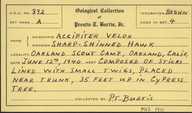 Oological Collection
of
Prentis E. Burtis, Jr.
A.O.U. No. 332
Set Mark A.
Brown
Eggs in Set 4
Name ACCIPITER VELOX
Name SHARP-SHINNED HAWK
Locality OAKLAND SCOUT CAMP, OAKLAND, CALIF.
Date JUNE 12th, 1940 Nest COMPOSED OF STICKS
LINED WITH SMALL TWIGS, PLACED
NEAR TRUNK, 35 FEET UP IN CYPRESS
TREE.
Collected by P.T. BURTIS